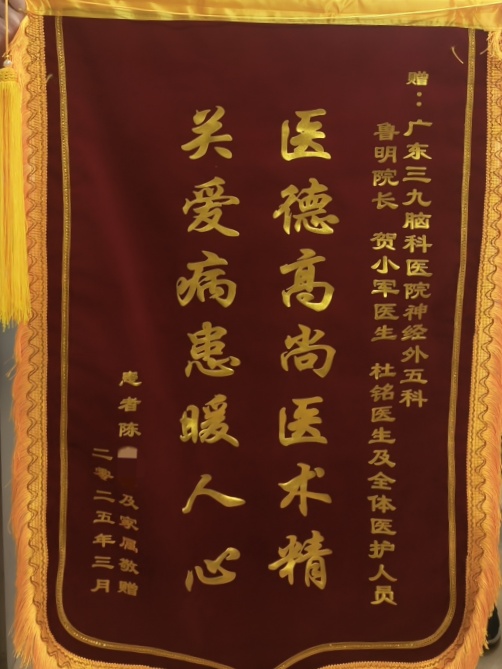 赠：广东三九脑科医院神经外五科
鲁明院长 贺小军医生 杜铭医生及全体医护人员
医德高尚医术精
关爱病患暖人心
患者陈 及家属敬赠
二零二五年三月